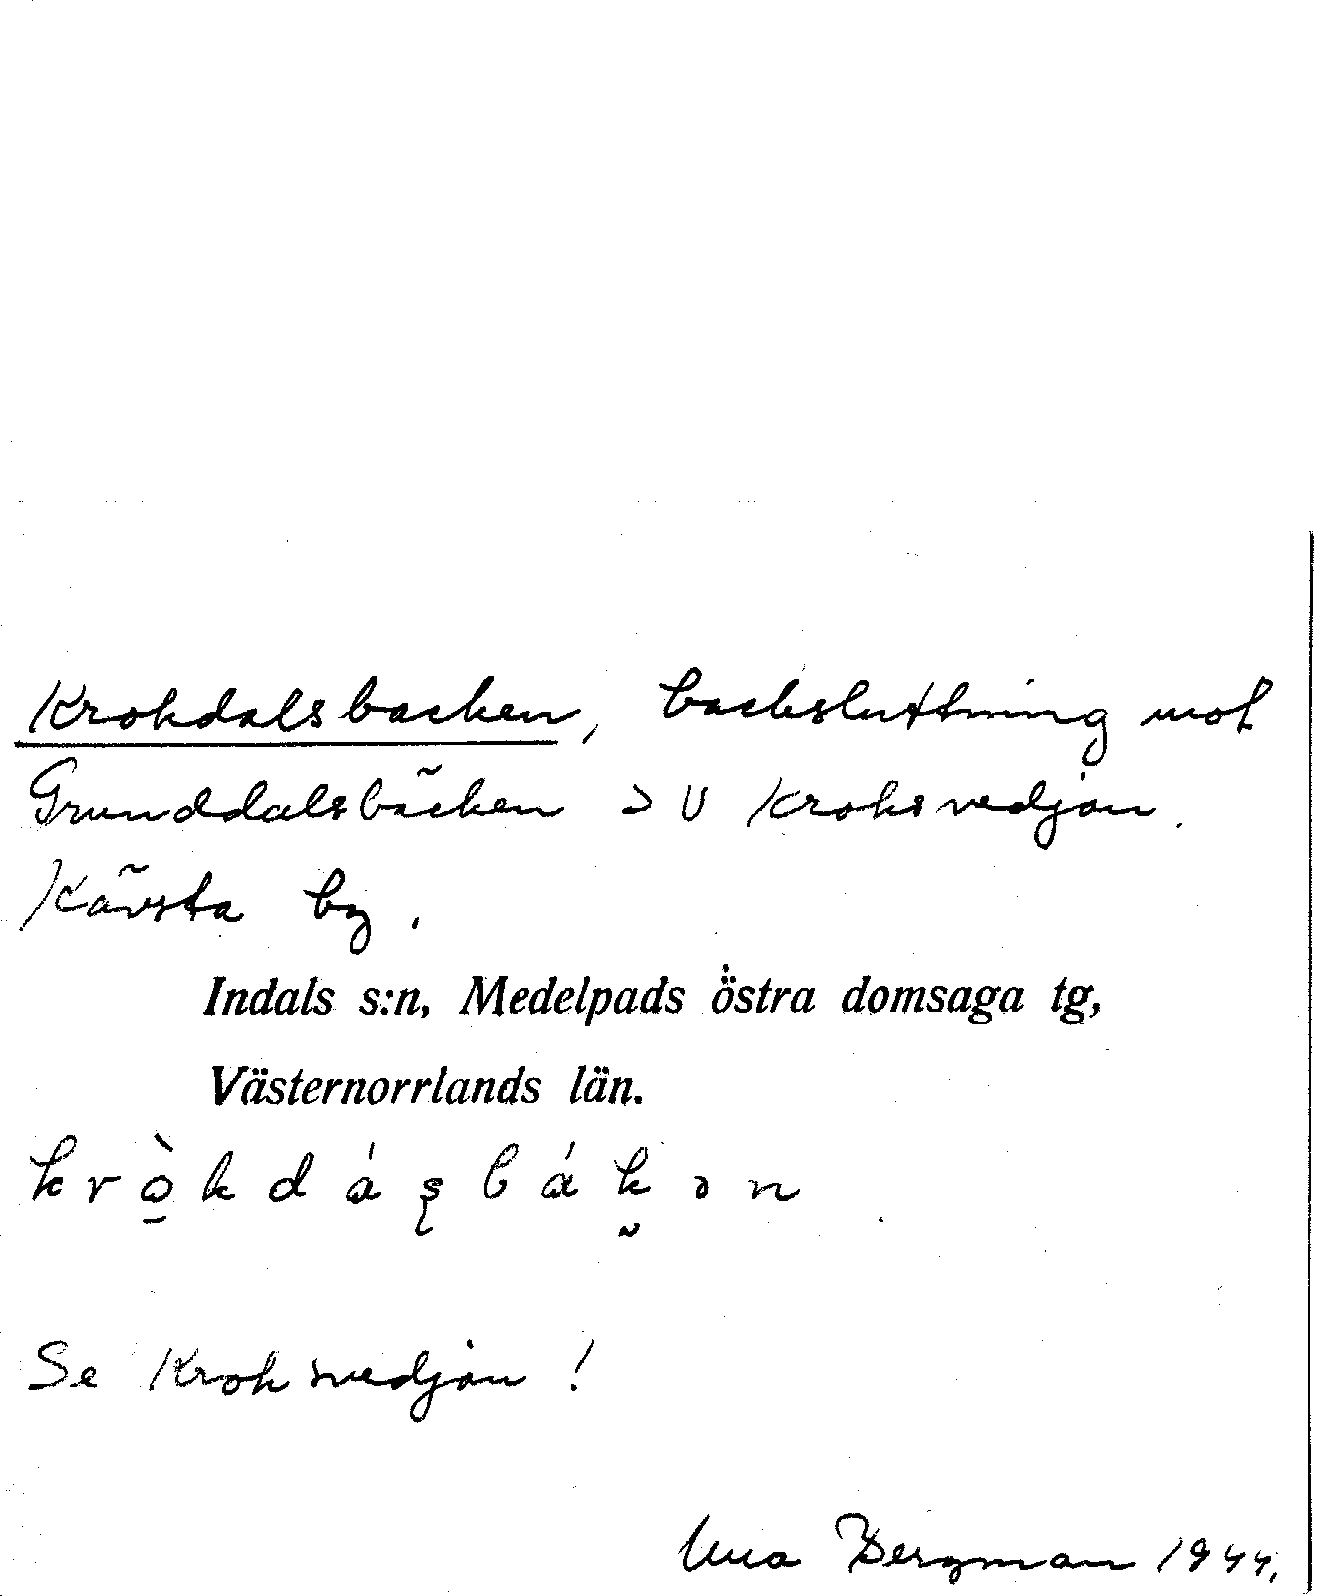 Krokdalsbacken, backsluttning mot
Grunddalsbäcken > U Kroksvedjan.
Kävsta by.
Indals s:n, Medelpads östra domsaga tg,
Västernorrlands län.
Se Kroksvedjan!
Bergman 1944.